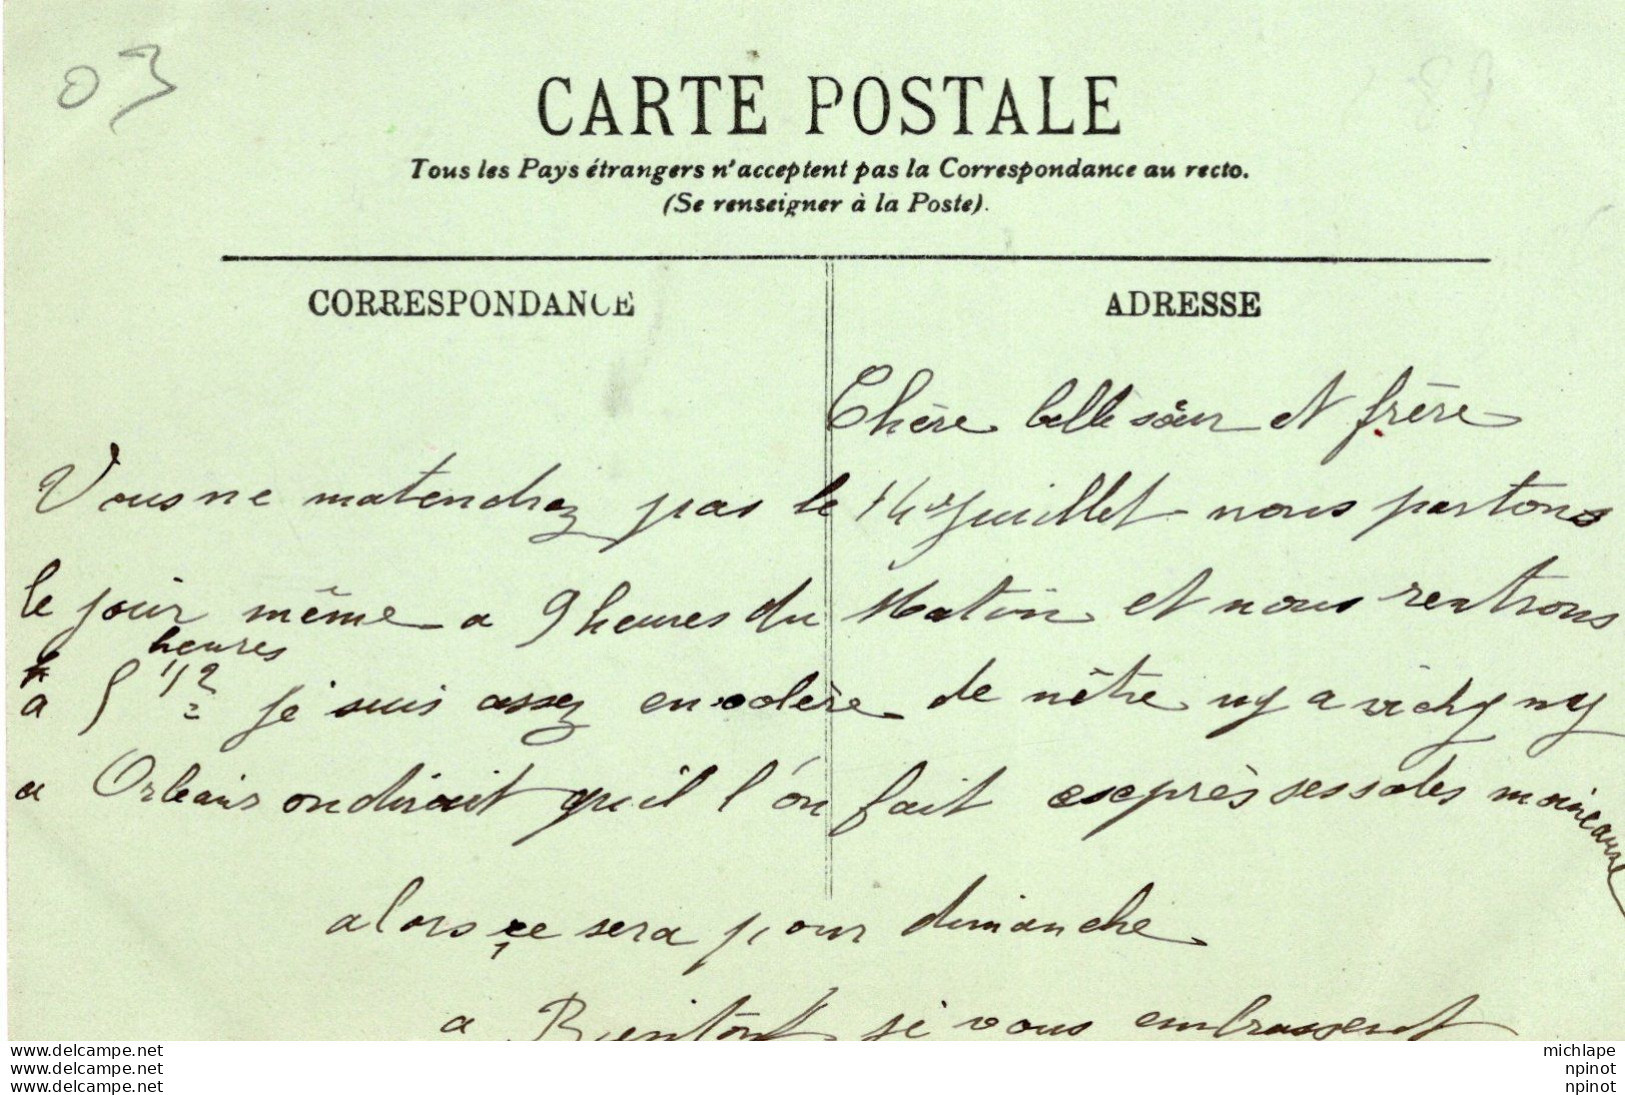 03
CARTE POSTALE
Tous les Pays étrangers n'acceptent pas la Correspondance au recto.
(Se renseigner à la Poste).
CORRESPONDANCE
ADRESSE
Chère belle sœur et frère
Vous ne matendrez pas le 14 juillet nous partons
le jour même a 9 heures du Matin et nous rentrons
heures
a 5 1/2 je suis assez en colère de nêtre ny a vichy ny
a Orléans on dirait qu'il l'on fait exeprès ses sales moineaux
alors ce sera pour dimanche
a Bientôt je vous embrasserot
www.delcampe.net
www.delcampe.net
www.delcampe.net
michlape
npinot
npinot